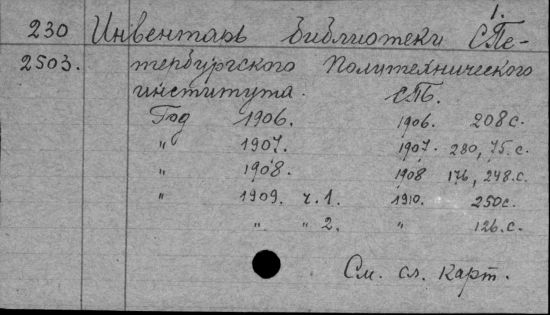 1.
230 Инвентарь Библиотеки С.Пе-
2503. тербургского Политехнического
института. СПБ.
Год 1906. 1906. 208 с.
„ 1907. 1907. 280, 75. с.
„ 1908. 1908 176, 248. с.
„ 1909. ч. 1. 1910. 250 с.
„ „ 2. „ 126. с.
См. сл. карт.